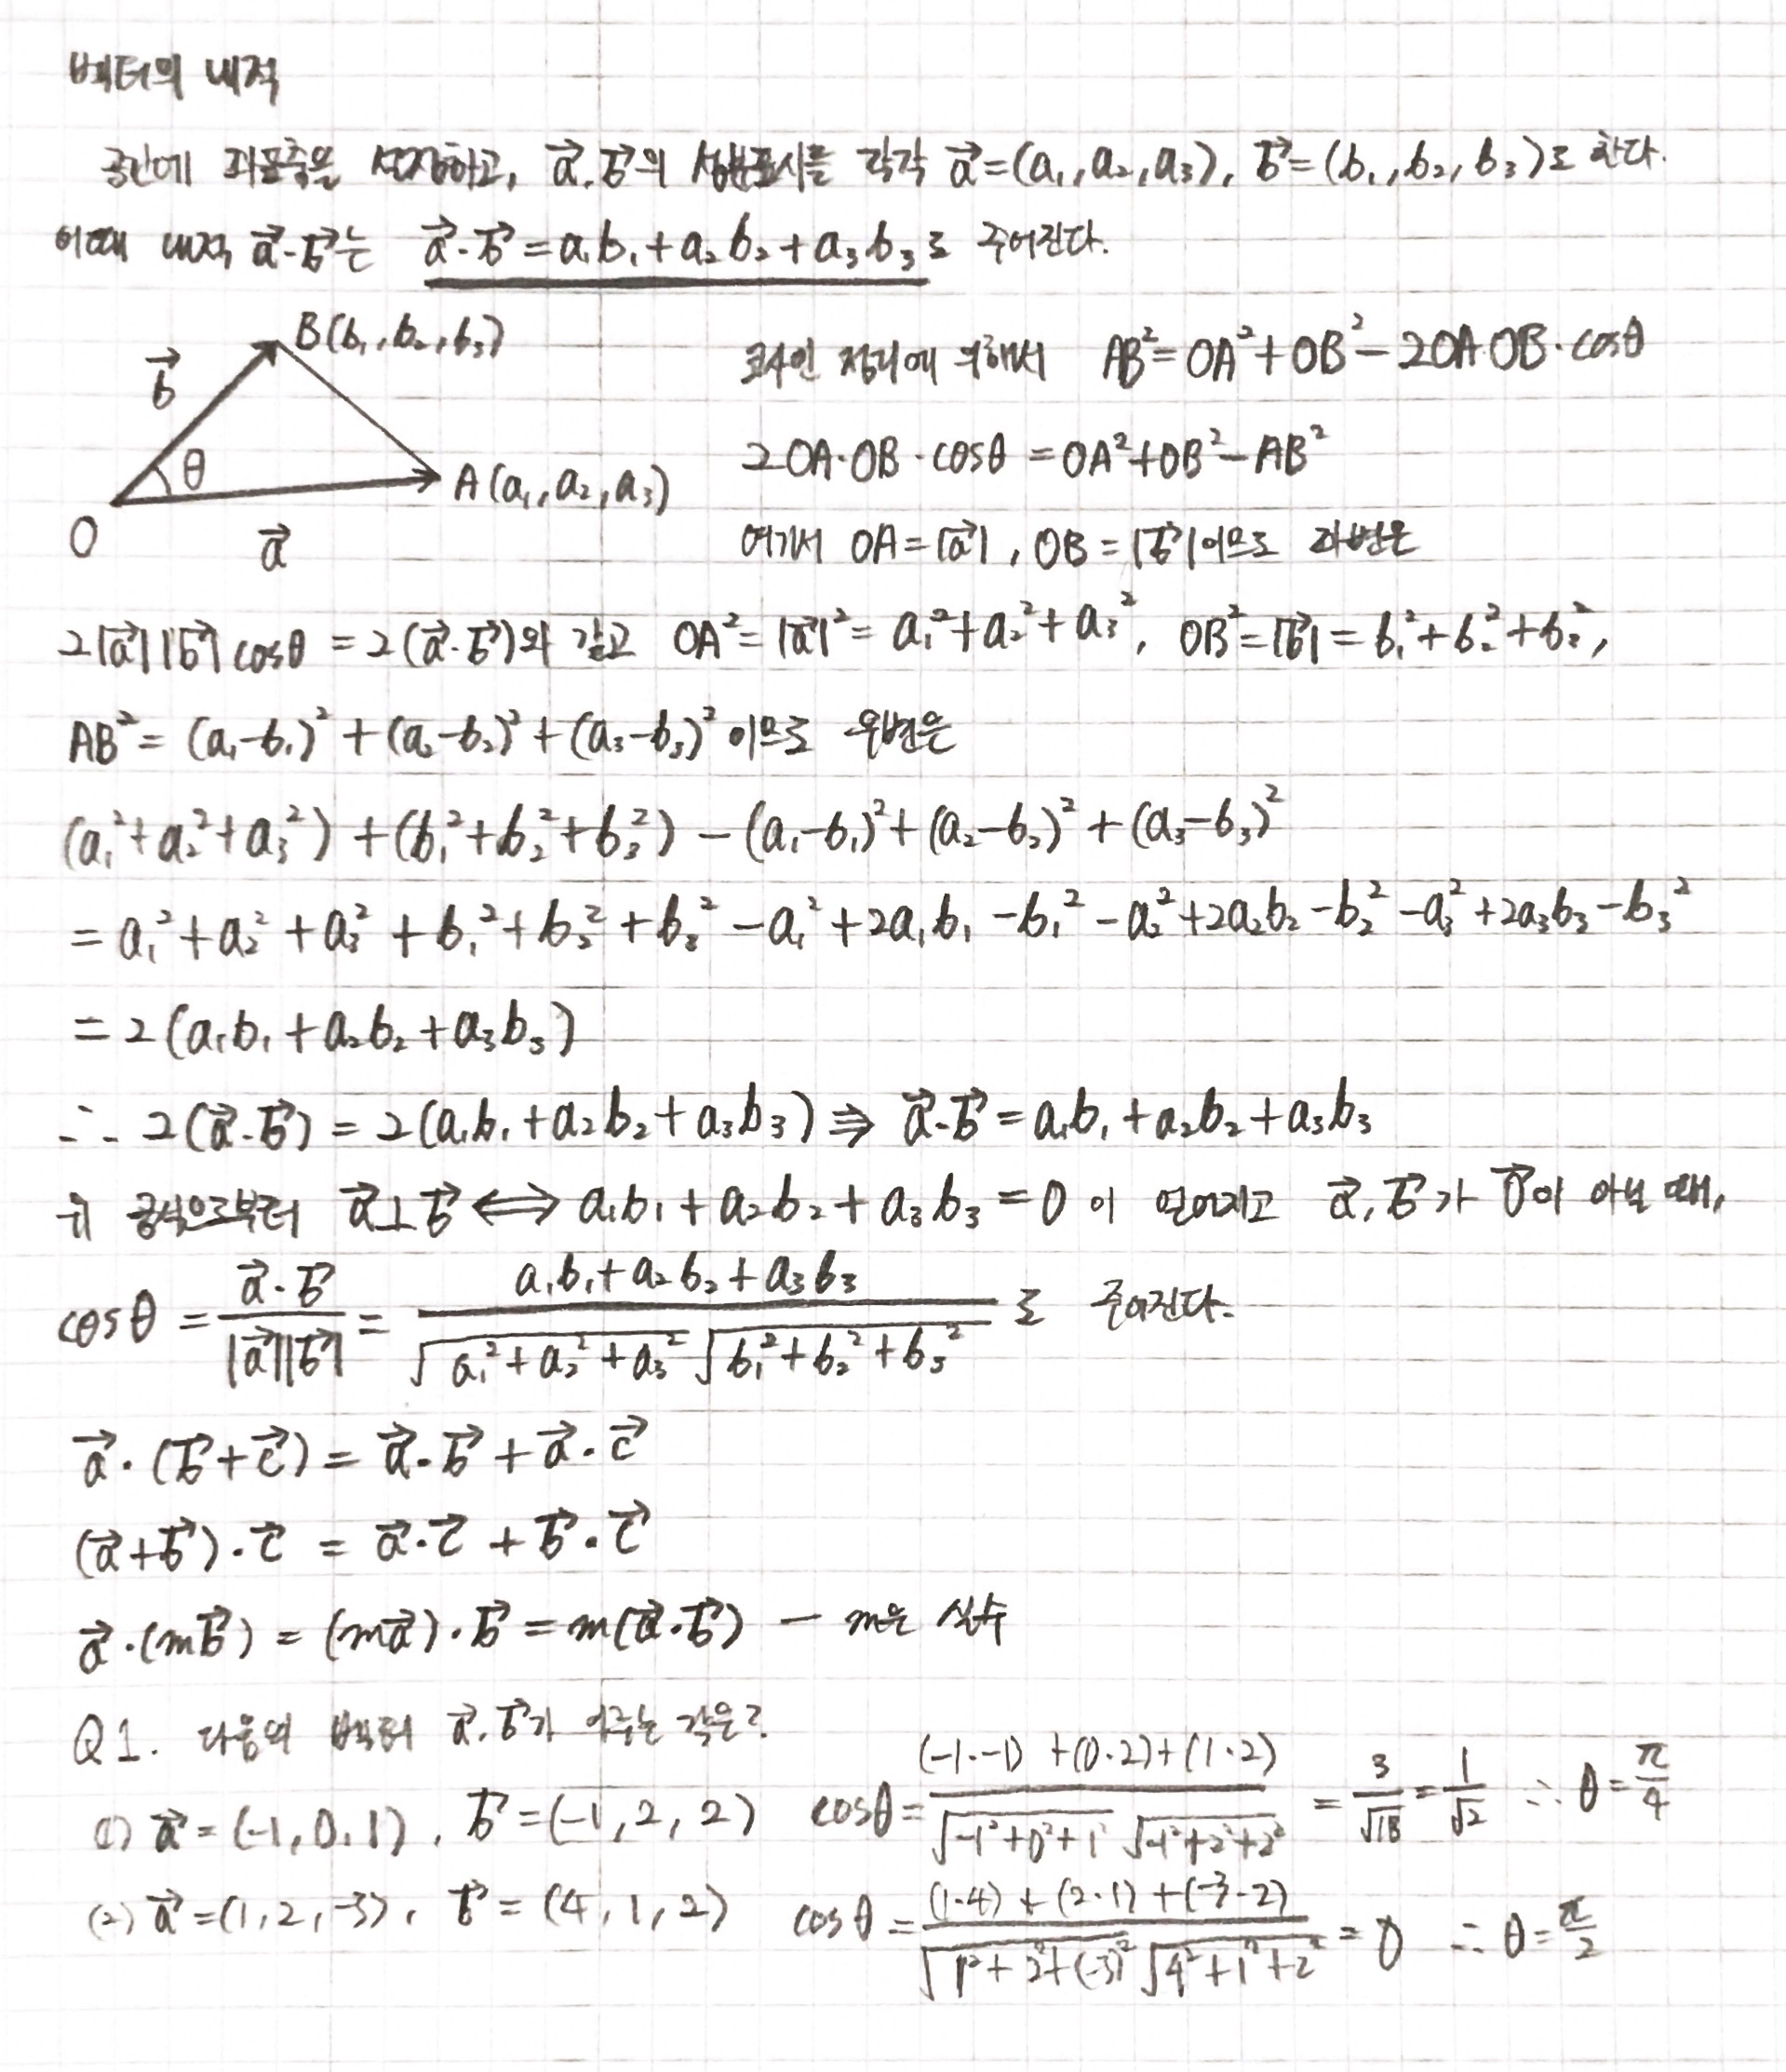 벡터의 내적
공간에 좌표축을 설정하고, a⃗, b⃗의 성분표시를 각각 a⃗=(a₁, a₂, a₃), b⃗=(b₁, b₂, b₃)로 한다.
이때 내적 a⃗·b⃗는 a⃗·b⃗=a₁b₁+a₂b₂+a₃b₃로 주어진다.
B(b₁, b₂, b₃)
b⃗
θ
A(a₁, a₂, a₃)
O
a⃗
코사인 정리에 의해서 AB²=OA²+OB²-2OA·OB·cosθ
2OA·OB·cosθ=OA²+OB²-AB²
여기서 OA=|a⃗|, OB=|b⃗|이므로 좌변은
2|a⃗||b⃗|cosθ=2(a⃗·b⃗)와 같고 OA²=|a⃗|²=a₁²+a₂²+a₃², OB²=|b⃗|=b₁²+b₂²+b₃²,
AB²=(a₁-b₁)²+(a₂-b₂)²+(a₃-b₃)²이므로 우변은
(a₁²+a₂²+a₃²)+(b₁²+b₂²+b₃²)-(a₁-b₁)²+(a₂-b₂)²+(a₃-b₃)²
=a₁²+a₂²+a₃²+b₁²+b₂²+b₃²-a₁²+2a₁b₁-b₁²-a₂²+2a₂b₂-b₂²-a₃²+2a₃b₃-b₃²
=2(a₁b₁+a₂b₂+a₃b₃)
∴ 2(a⃗·b⃗)=2(a₁b₁+a₂b₂+a₃b₃)⇒ a⃗·b⃗=a₁b₁+a₂b₂+a₃b₃
위 공식으로부터 a⃗⊥b⃗⟺a₁b₁+a₂b₂+a₃b₃=0이 얻어지고 a⃗, b⃗가 0⃗이 아닐 때,
cosθ=a⃗·b⃗/|a⃗||b⃗|=a₁b₁+a₂b₂+a₃b₃/√(a₁²+a₂²+a₃²)√(b₁²+b₂²+b₃²)로 주어진다.
a⃗·(b⃗+c⃗)=a⃗·b⃗+a⃗·c⃗
(a⃗+b⃗)·c⃗=a⃗·c⃗+b⃗·c⃗
a⃗·(mb⃗)=(ma⃗)·b⃗=m(a⃗·b⃗) - m은 실수
Q1. 다음의 벡터 a⃗, b⃗가 이루는 각은?
(1) a⃗=(-1, 0, 1), b⃗=(-1, 2, 2) cosθ=(-1·-1)+(0·2)+(1·2)/√(-1²+0²+1²)√(-1²+2²+2²)=3/√18=1/√2 ∴ θ=π/4
(2) a⃗=(1, 2, -3), b⃗=(4, 1, 2) cosθ=(1·4)+(2·1)+(-3·2)/√(1²+2²+(-3)²)√(4²+1²+2²)=0 ∴ θ=π/2